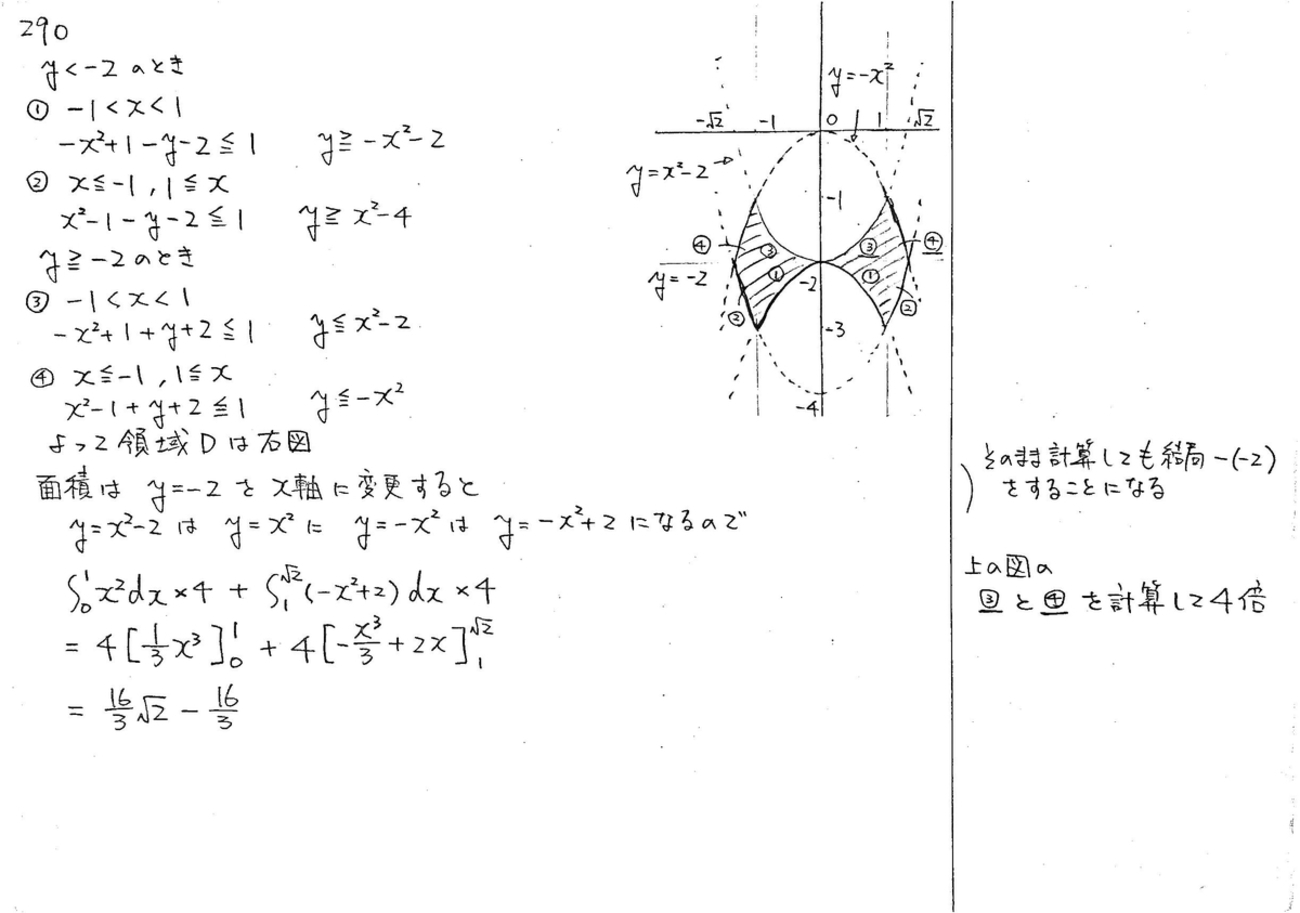 290
y<-2 のとき
① -1<x<1
-x²+1-y-2≦1 y≧-x²-2
② x≦-1, 1≦x
x²-1-y-2≦1 y≧x²-4
y≧-2 のとき
③ -1<x<1
-x²+1+y+2≦1 y≦x²-2
④ x≦-1, 1≦x
x²-1+y+2≦1 y≦-x²
よって領域Dは右図
面積は y=-2 を x軸に変更すると
y=x²-2 は y=x² に y=-x² は y=-x²+2 になるので
∫₀¹x²dx×4 + ∫₁^√2(-x²+2)dx×4
= 4[1/3 x³]₀¹ + 4[-x³/3+2x]₁^√2
= 16/3 √2 - 16/3
y=-x²
-√2 -1 0 1 √2
y=x²-2
-1
④ ③ ③ ④
y=-2 ① -2 ①
② -3 ②
-4
そのまま計算しても結局 -(-2)
をすることになる
上の図の
③と④を計算して4倍